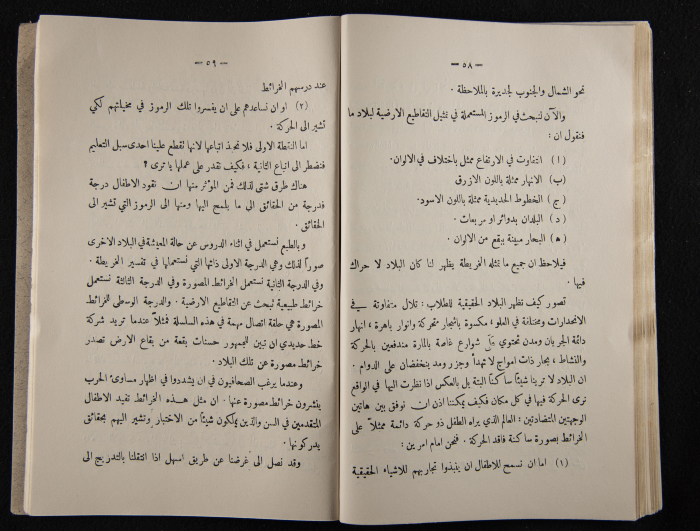 — ٥٨ —
نحو الشمال والجنوب لجديرة بالملاحظة .
والآن لنبحث في الرموز المستعملة في تمثيل التقاطيع الارضية لبلاد ما
فنقول ان
(ا) التفاوت في الارتفاع ممثل باختلاف في الالوان .
(ب) الانهار ممثلة باللون الازرق
(ج) الخطوط الحديدية ممثلة باللون الاسود .
(د) البلدان بدوائر او مربعات .
(ه) البحار مبينة ببقع من الالوان .
فيلاحظ ان جميع ما تمثله الخريطة يظهر لنا كأن البلاد لا حراك
فيها .
تصور كيف تظهر البلاد الحقيقية للطلاب : تلال متفاوتة في
الانحدارات ومختلفة في العلو ، مكسوة باشجار متحركة وانوار باهرة ، انهار
دائمة الجريان ومدن تحتوي على شوارع غاصة بالمارة مندفعين بالحركة
والنشاط ، بحار ذات امواج لا تهدأ وجزر ومد ينخفضان على الدوام .
ان البلاد لا ترينا شيئًا ساكنًا البتة بل بالعكس اذا نظرت اليها في الواقع
ترى الحركة فيها في كل مكان فكيف يمكننا اذن ان نوفق بين هاتين
الوجهتين المتضادتين : العالم الذي يراه الطفل ذو حركة دائمة ممثلاً على
الخرائط بصورة ساكنة فاقد الحركة . فنحن امام امرين :
(١) اما ان نسمح للاطفال ان ينبذوا تجاربهم للاشياء الحقيقية
— ٥٩ —
عند درسهم الخرائط
(٢) او ان نساعدهم على ان يفسروا تلك الرموز في مخيلاتهم لكي
تشير الى الحركة .
اما النقطة الاولى فلا نحبذ اتباعها لانها تقطع علينا احدى سبل التعليم
فنضطر الى اتباع الثانية ، فكيف نقدر على عملها يا ترى ؟
هناك طرق شتى لذلك فمن المؤثر منها ان نقود الاطفال درجة
فدرجة من الحقائق الى ما يلمح اليها ومنها الى الرموز التي تشير الى
الحقائق .
وبالطبع نستعمل في اثناء الدروس عن حالة المعيشة في البلاد الاخرى
صوراً لذلك وهي الدرجة الاولى ذاتها التي نستعملها في تفسير الخريطة .
وفي الدرجة الثانية نستعمل الخرائط المصورة وفي الدرجة الثالثة نستعمل
خرائط طبيعية تبحث عن التقاطيع الارضية . والدرجة الوسطى للخرائط
المصورة هي حلقة اتصال مهمة في هذه السلسلة فمثلاً عندما تريد شركة
خط حديدي ان تبين للجمهور حسنات بقعة من بقاع الارض تصدر
خرائط مصورة عن تلك البلاد .
وعندما يرغب الصحافيون في ان يشددوا في اظهار مساوئ الحرب
ينشرون خرائط مصورة عنها . ان مثل هذه الخرائط تفيد الاطفال
المتقدمين في السن والذين يملكون شيئًا من الاختبار وتشير اليهم بحقائق
يدركونها .
وقد نصل الى غرضنا عن طريق اسهل اذا انتقلنا بالتدريج الى